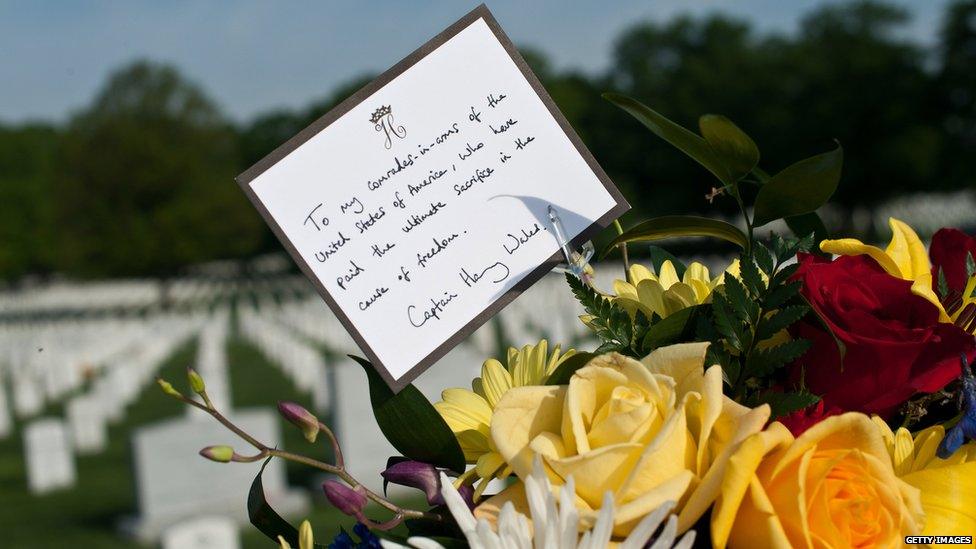 H
To my comrades-in-arms of the
United States of America, who have
paid the ultimate sacrifice in the
cause of freedom.
Captain Harry Wales.
GETTY IMAGES